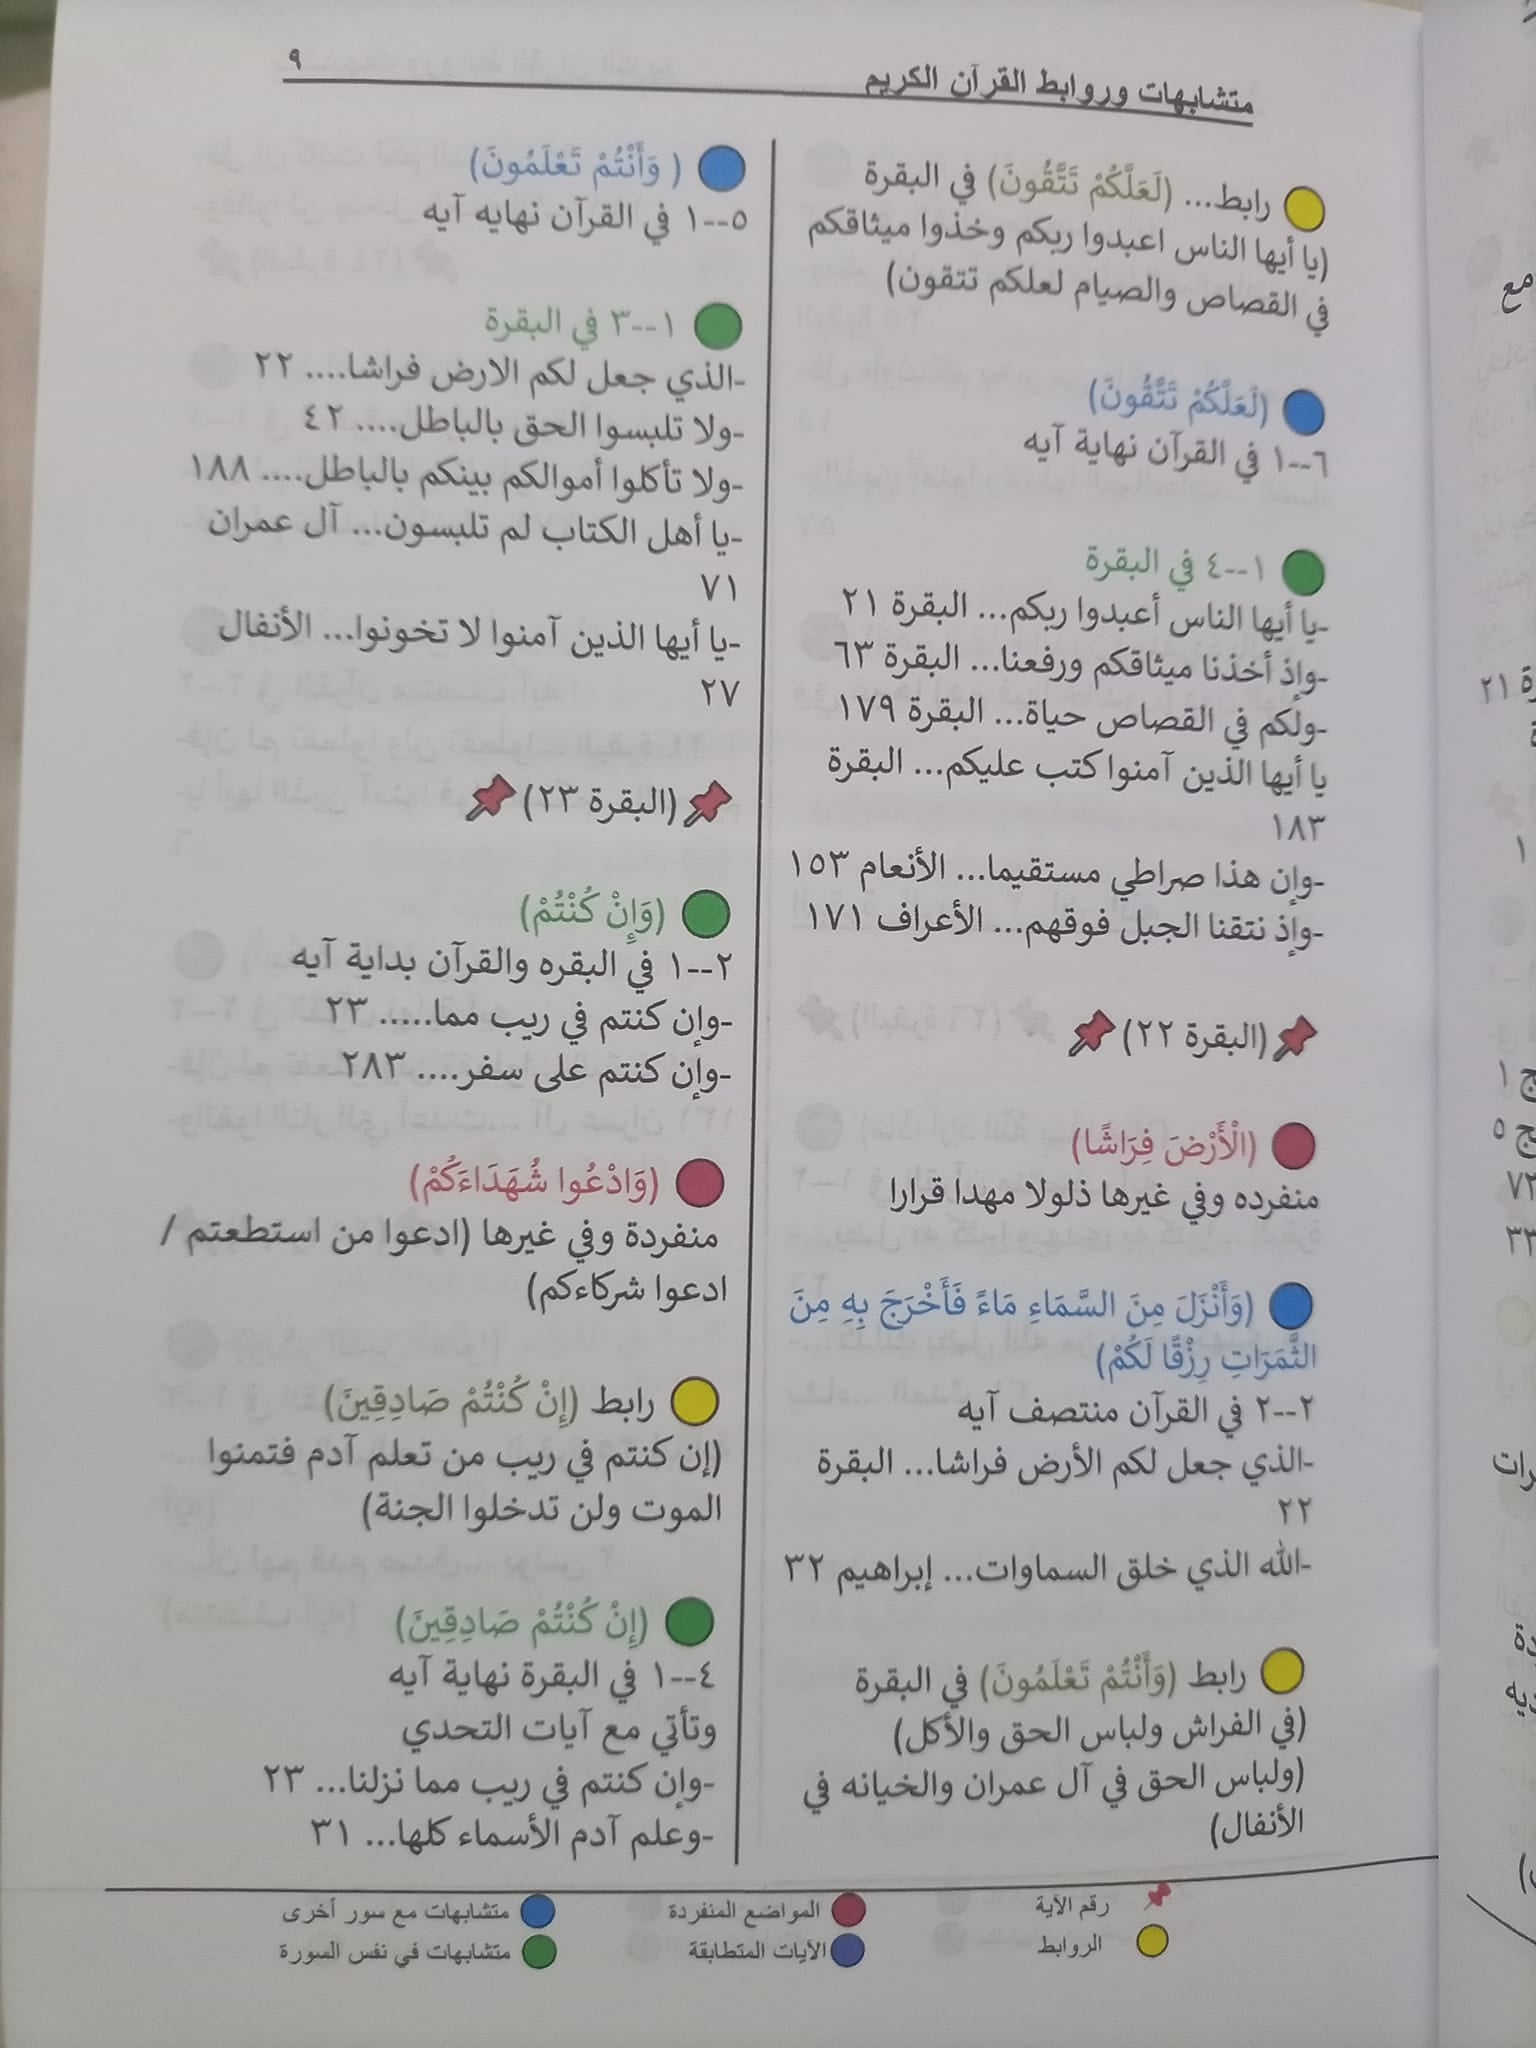 متشابهات وروابط القرآن الكريم
٩
رابط... (لَعَلَّكُمْ تَتَّقُونَ) في البقرة
(يا أيها الناس اعبدوا ربكم وخذوا ميثاقكم
في القصاص والصيام لعلكم تتقون)
(لَعَلَّكُمْ تَتَّقُونَ)
٦--١ في القرآن نهاية آيه
١--٤ في البقرة
-يا أيها الناس أعبدوا ربكم... البقرة ٢١
-وإذ أخذنا ميثاقكم ورفعنا... البقرة ٦٣
-ولكم في القصاص حياة... البقرة ١٧٩
يا أيها الذين آمنوا كتب عليكم... البقرة
١٨٣
-وإن هذا صراطي مستقيما... الأنعام ١٥٣
-وإذ نتقنا الجبل فوقهم... الأعراف ١٧١
(البقرة ٢٢)
(الْأَرْضَ فِرَاشًا)
منفرده وفي غيرها ذلولا مهدا قرارا
(وَأَنْزَلَ مِنَ السَّمَاءِ مَاءً فَأَخْرَجَ بِهِ مِنَ
الثَّمَرَاتِ رِزْقًا لَكُمْ)
٢--٢ في القرآن منتصف آيه
-الذي جعل لكم الأرض فراشا... البقرة
٢٢
-الله الذي خلق السماوات... إبراهيم ٣٢
رابط (وَأَنْتُمْ تَعْلَمُونَ) في البقرة
(في الفراش ولباس الحق والأكل)
(ولباس الحق في آل عمران والخيانه في
الأنفال)
( وَأَنْتُمْ تَعْلَمُونَ)
٥--١ في القرآن نهايه آيه
١--٣ في البقرة
-الذي جعل لكم الارض فراشا.... ٢٢
-ولا تلبسوا الحق بالباطل.... ٤٢
-ولا تأكلوا أموالكم بينكم بالباطل.... ١٨٨
-يا أهل الكتاب لم تلبسون... آل عمران
٧١
-يا أيها الذين آمنوا لا تخونوا... الأنفال
٢٧
(البقرة ٢٣)
(وَإِنْ كُنْتُمْ)
٢--١ في البقره والقرآن بداية آيه
-وإن كنتم في ريب مما..... ٢٣
-وإن كنتم على سفر.... ٢٨٣
(وَادْعُوا شُهَدَاءَكُمْ)
منفردة وفي غيرها (ادعوا من استطعتم /
ادعوا شركاءكم)
رابط (إِنْ كُنْتُمْ صَادِقِينَ)
(إن كنتم في ريب من تعلم آدم فتمنوا
الموت ولن تدخلوا الجنة)
(إِنْ كُنْتُمْ صَادِقِينَ)
٤--١ في البقرة نهاية آيه
وتأتي مع آيات التحدي
-وإن كنتم في ريب مما نزلنا... ٢٣
-وعلم آدم الأسماء كلها... ٣١
رقم الآية
المواضع المنفردة
متشابهات مع سور أخرى
الروابط
الآيات المتطابقة
متشابهات في نفس السورة